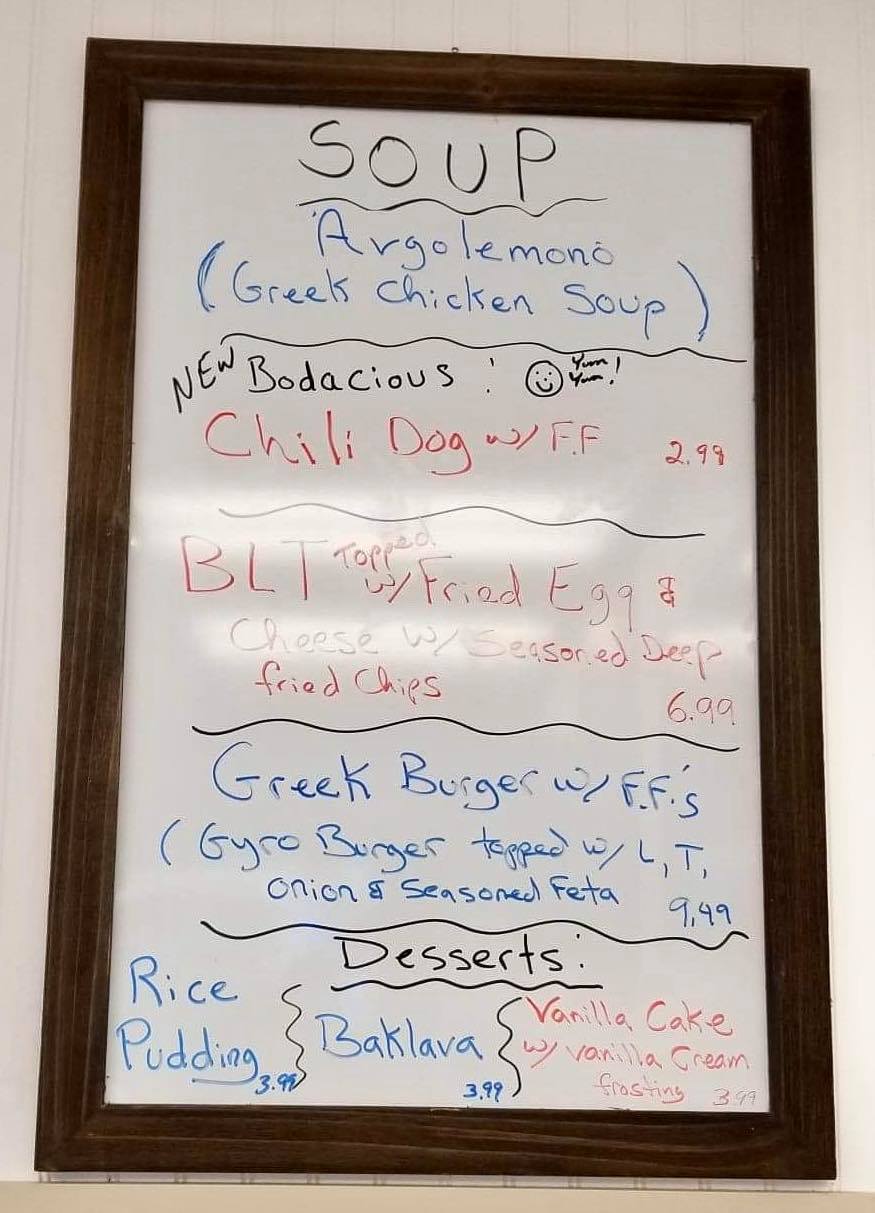 SOUP
Argolemono
(Greek Chicken Soup)
NEW Bodacious : Yum! Yum!
Chili Dog w/ F.F 2.99
BLT Topped w/ Fried Egg &
Cheese w/ Seasoned Deep
fried Chips
6.99
Greek Burger w/ F.F.'s
(Gyro Burger topped w/ L, T,
onion & Seasoned Feta
9.49
Desserts:
Rice Pudding 3.99
Baklava 3.99
Vanilla Cake
w/ vanilla Cream
frosting 3.99